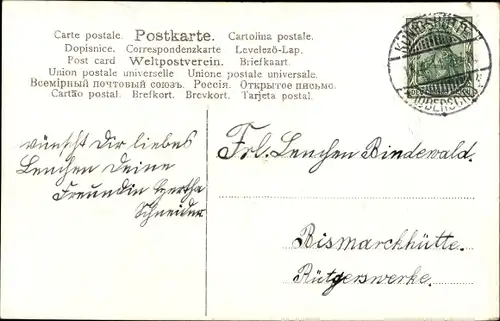 Carte postale. Postkarte. Cartolina postale.
Dopisnice. Correspondenzkarte Levelező-Lap.
Post card Weltpostverein. Briefkaart.
Union postale universelle Unione postale universale.
Всемірный почтовый союзъ. Россія. Открытое письмо.
Cartão postal. Brefkort. Brevkort. Tarjeta postal.
KÖNIGSHÜTTE
(OBERSCHL.)
wünscht Dir liebes
Lenchen Deine
Freundin Hertha
Schneider
Frl. Lenchen Bindewald.
Bismarckhütte.
Rütgerswerke.